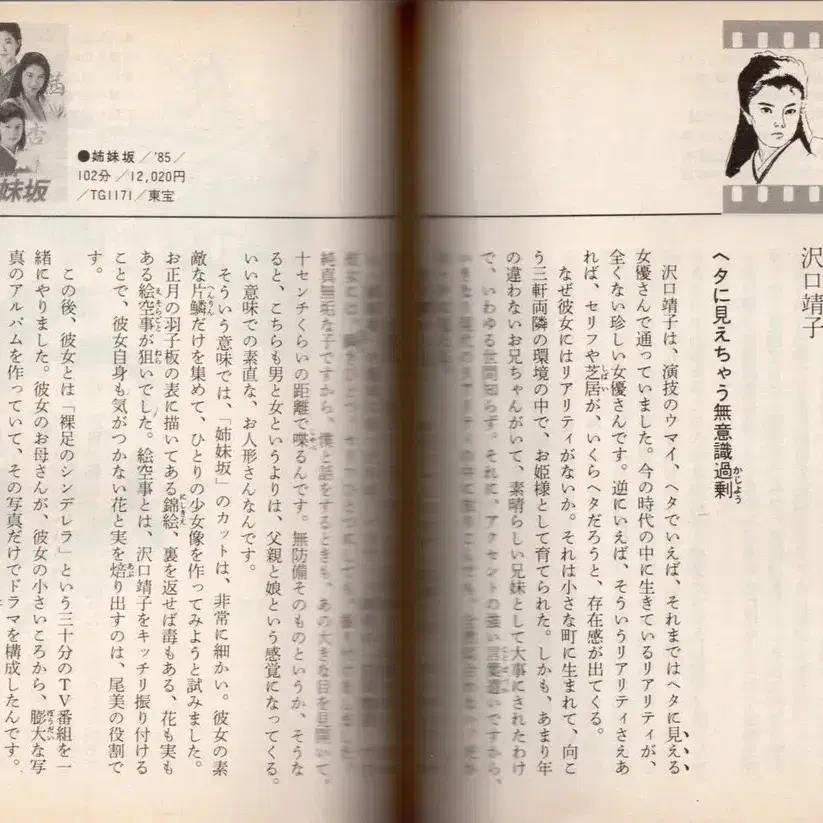 沢口靖子
ヘタに見えちゃう無意識過剰
かじよう
沢口靖子は、演技のウマイ、ヘタでいえば、それまではヘタに見える
女優さんで通っていました。今の時代の中に生きているリアリティが、
全くない珍しい女優さんです。逆にいえば、そういうリアリティさえあ
れば、セリフや芝居が、いくらヘタだろうと、存在感が出てくる。
しばい
なぜ彼女にはリアリティがないか。それは小さな町に生まれて、向こ
う三軒両隣の環境の中で、お姫様として育てられた。しかも、あまり年
の違わないお兄ちゃんがいて、素晴らしい兄妹として大事にされたわけ
で、いわゆる世間知らず。それに、アクセントの強い言葉遣いですから、
純真無垢な子ですから、僕と話をするときも、あの大きな目を見開いて、
十センチくらいの距離で喋るんです。無防備そのものというか、そうな
しゃべ
ると、こちらも男と女というよりは、父親と娘という感覚になってくる。
いい意味での素直な、お人形さんなんです。
そういう意味では、「姉妹坂」のカットは、非常に細かい。彼女の素
敵な片鱗だけを集めて、ひとりの少女像を作ってみようと試みました。
へんりん
お正月の羽子板の表に描いてある錦絵、裏を返せば毒もある、花も実も
にしきえ
ある絵空事が狙いでした。絵空事とは、沢口靖子をキッチリ振り付ける
えそらごと
ねら
ことで、彼女自身も気がつかない花と実を焙り出すのは、尾美の役割で
あぶ
す。
この後、彼女とは「裸足のシンデレラ」という三十分のTV番組を一
緒にやりました。彼女のお母さんが、彼女の小さいころから、膨大な写
ぼうだい
真のアルバムを作っていて、その写真だけでドラマを構成したんです。
●姉妹坂／'85／
102分／12,020円
／TG1171／東宝
妹坂